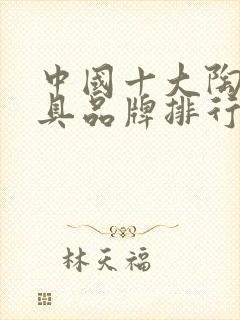 中國十大陶
具品牌排行
林天福